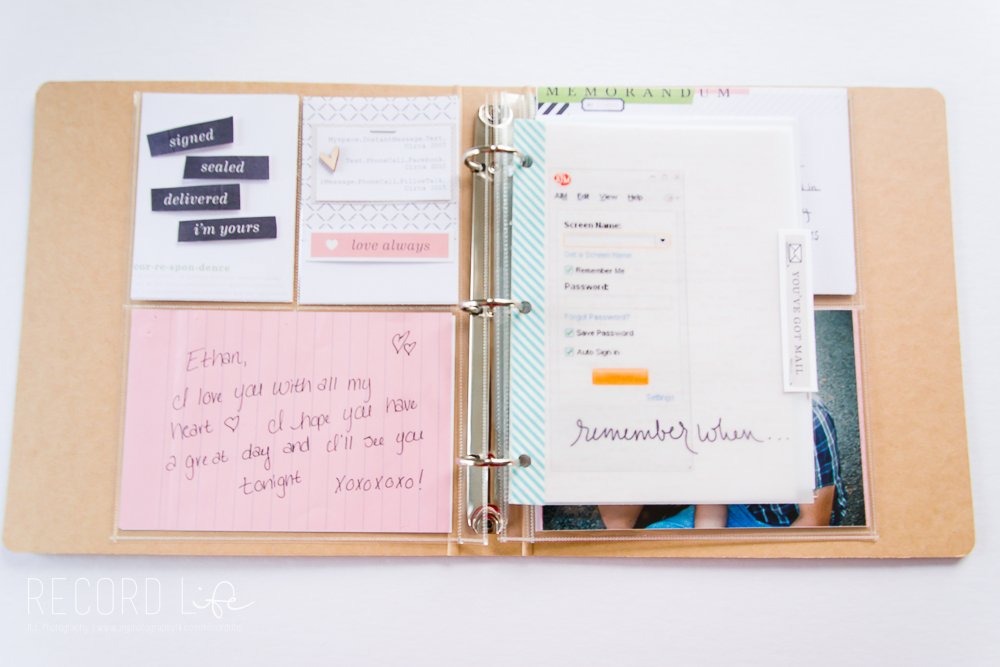 signed
sealed
delivered
i'm yours
cor·re·spon·dence
Myspace.InstantMessage.Text.
Circa 2003
Text.PhoneCall.Facebook.
iMessage.PhoneCall.PillowTalk.
love always
Ethan,
I love you with all my
heart ♡ I hope you have
a great day and I'll see you
tonight xoxoxoxo!
MEMORANDUM
AIM
AIM Edit View Help
Screen Name:
Get a Screen Name
Remember Me
Password:
Forgot Password?
Save Password
Auto Sign in
Settings
remember when...
YOU'VE GOT MAIL
RECORD Life